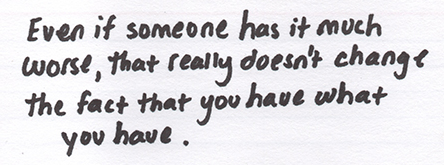 Even if someone has it much
worse, that really doesn't change
the fact that you have what
you have.